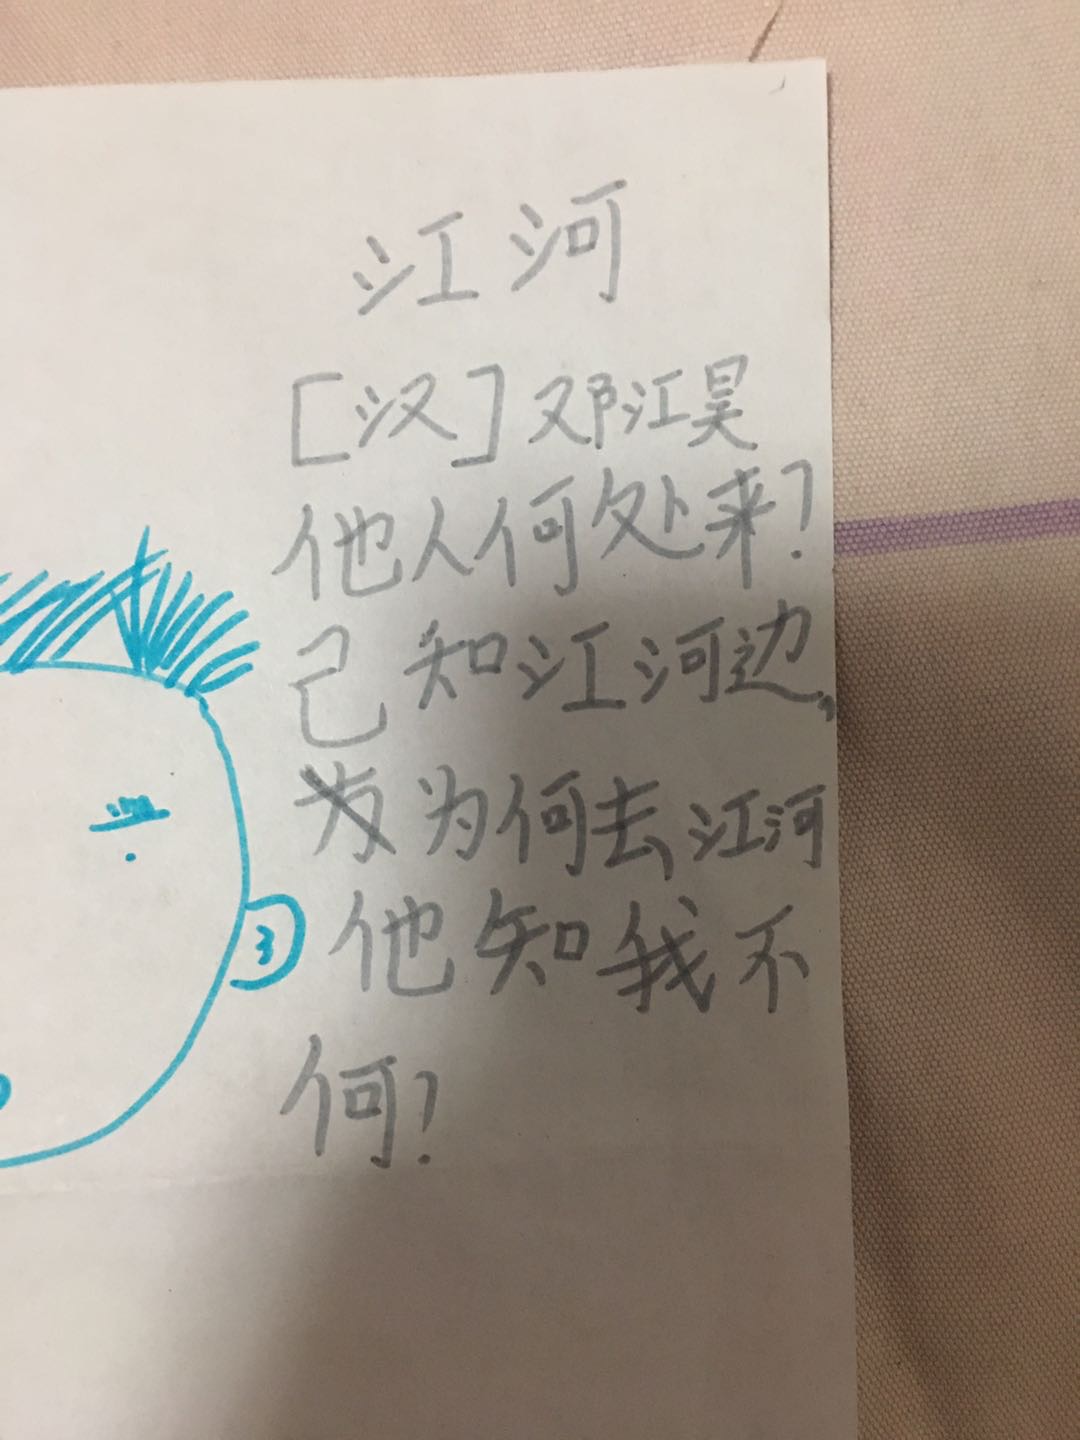 江河
[汉]邓江昊
他人何处来?
己知江河边,
为何去江河
他知我不
何?